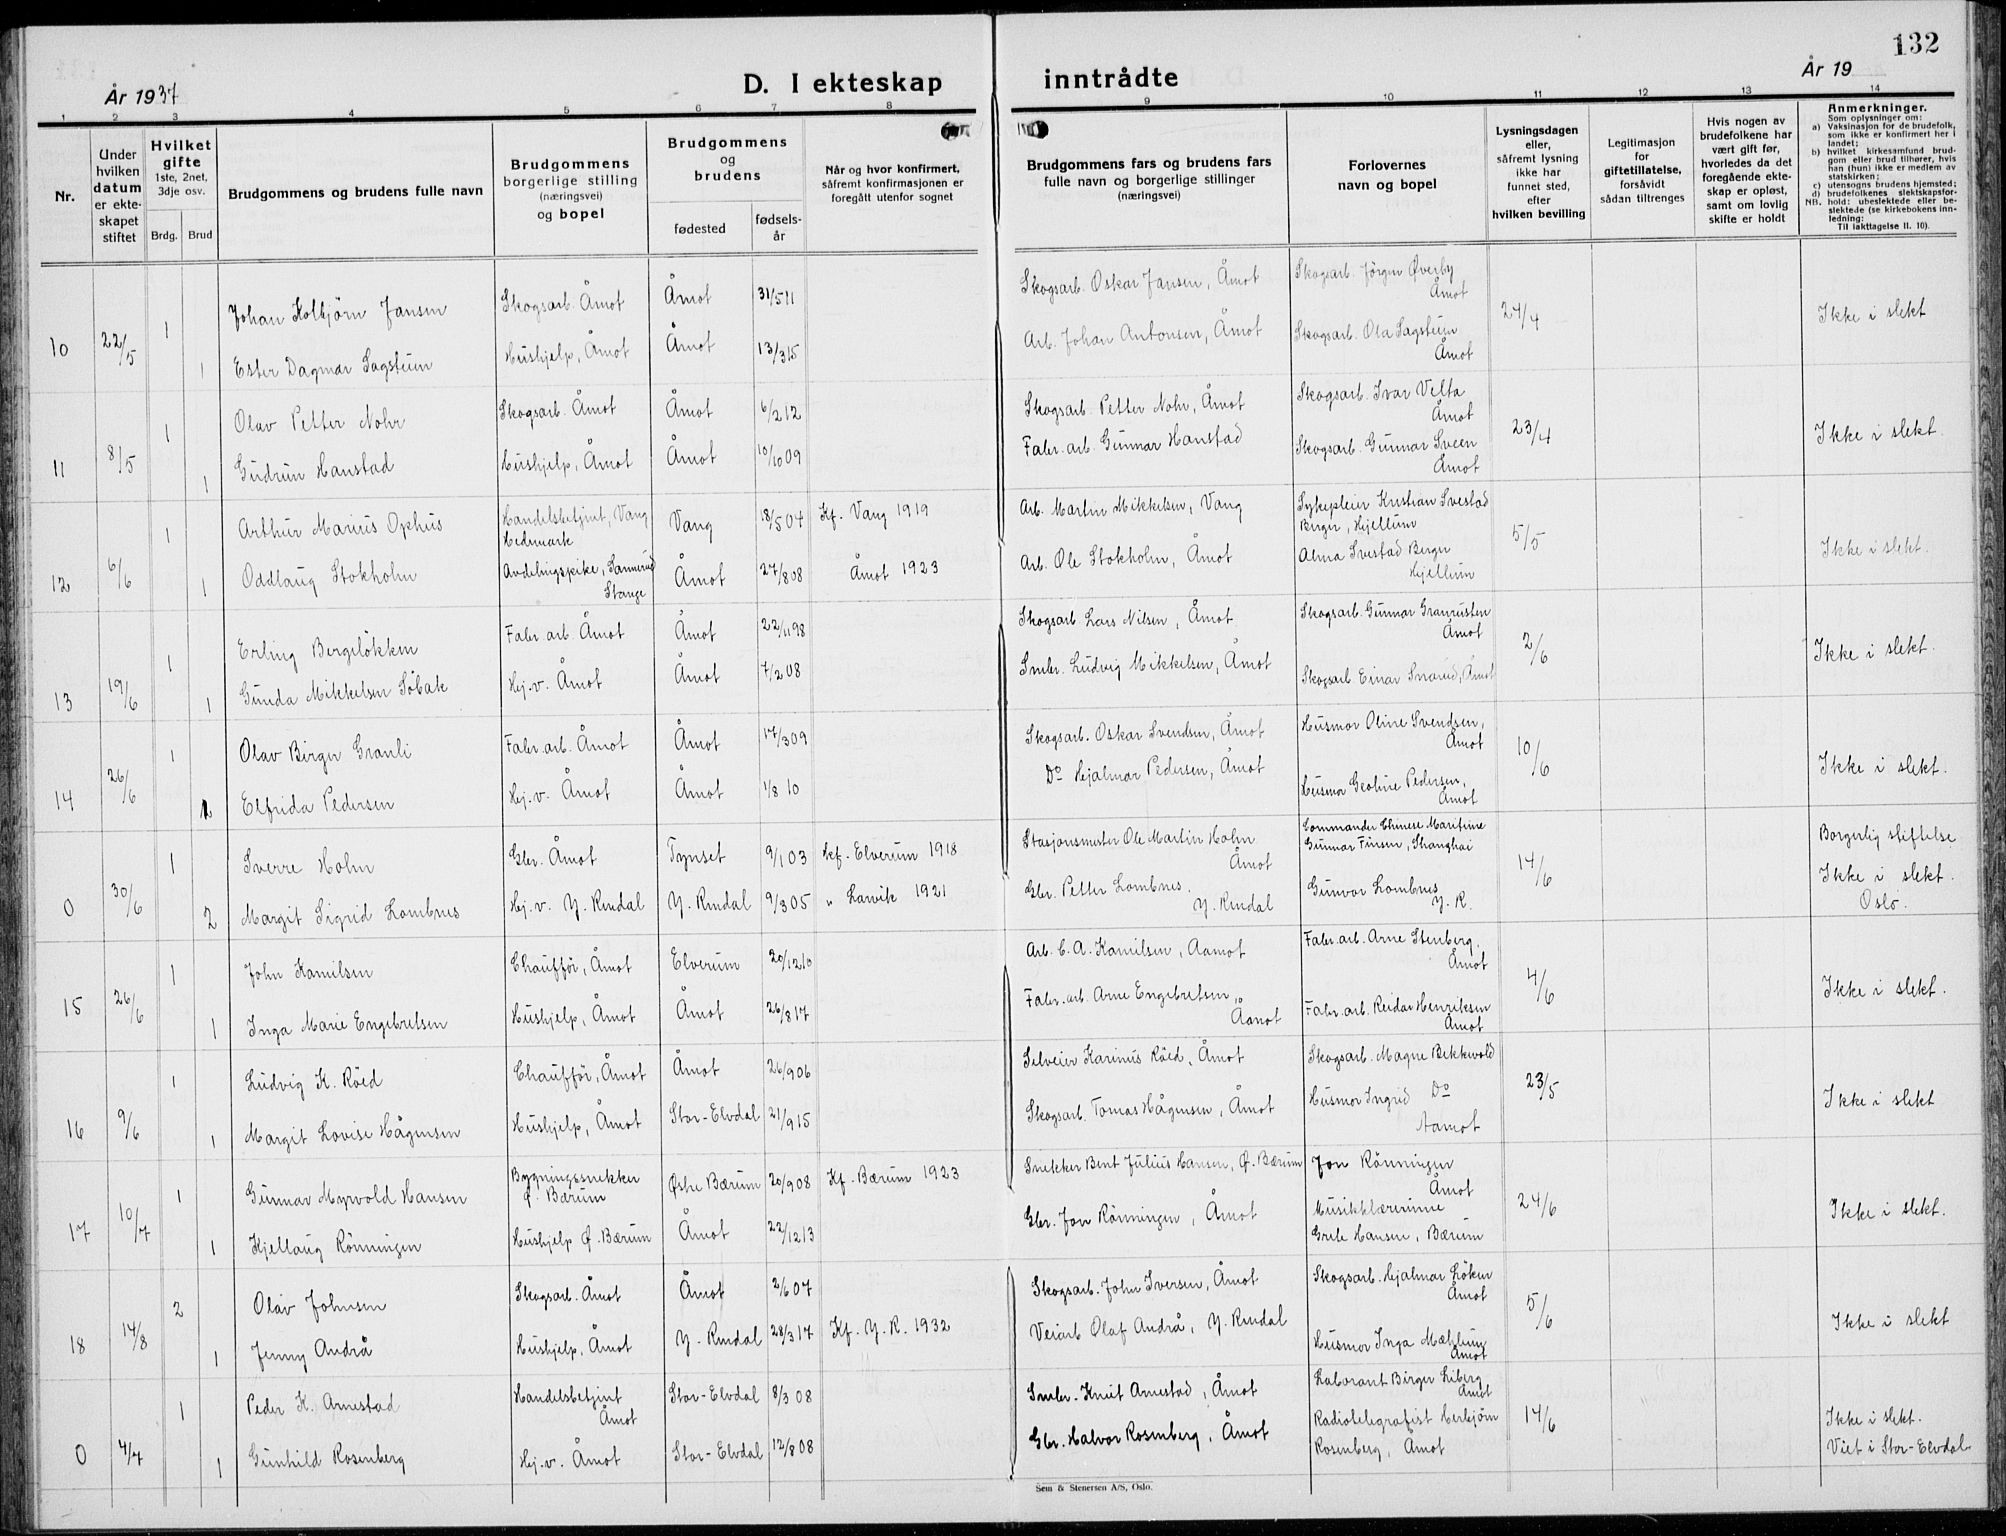 132
År 1937
D. I ekteskap
inntrådte
År 19
1 2 3 4 5 6 7 8 9 10 11 12 13 14
Nr.
Under hvilken datum er ekteskapet stiftet
Hvilket gifte
1ste, 2net, 3dje osv.
Brdg. Brud
Brudgommens og brudens fulle navn
Brudgommens borgerlige stilling (næringsvei) og bopel
Brudgommens og brudens
fødested
fødselsår
Når og hvor konfirmert, såfremt konfirmasjonen er foregått utenfor sognet
Brudgommens fars og brudens fars fulle navn og borgerlige stillinger (næringsvei)
Forlovernes navn og bopel
Lysningsdagen eller, såfremt lysning ikke har funnet sted, efter hvilken bevilling
Legitimasjon for giftetillatelse, forsåvidt sådan tiltrenges
Hvis nogen av brudefolkene har vært gift før, hvorledes da det foregående ekteskap er opløst, samt om lovlig skifte er holdt
Anmerkninger.
Som oplysninger om:
a) Vaksinasjon for de brudefolk, som ikke er konfirmert her i landet;
b) hvilket kirkesamfund brudgom eller brud tilhører, hvis han (hun) ikke er medlem av statskirken;
c) utensogns brudens hjemsted;
d) brudefolkenes slektskapsforhold: ubeslektede eller beslektede (se kirkebokens innledning:
NB.
Til iakttagelse II. 10).
10 22/5 1 Johan Kolbjørn Jansen Skogsarb. Åmot Åmot 31/5 11 Skogsarb. Oskar Jansen, Åmot Skogsarb. Jörgen Øverby Åmot 24/4 Ikke i slekt
1 Ester Dagmar Sagstuen Hushjelp, Åmot Åmot 13/3 15 Arb. Johan Antonsen, Åmot Skogsarb. Ola Sagstuen Åmot
11 8/5 1 Olav Petter Nohr Skogsarb. Åmot Åmot 6/2 12 Skogsarb. Petter Nohr, Åmot Skogsarb. Ivar Velta Åmot 23/4 Ikke i slekt.
1 Gudrun Hanstad Hushjelp, Åmot Åmot 10/10 09 Fabr. arb. Gunnar Hanstad Skogsarb. Gunnar Sveen Åmot
12 6/6 1 Arthur Marius Ophus Handelsbetjent, Vang Hedemark Vang 18/5 04 Kf. Vang 1919 Arb. Martin Mikkelsen, Vang Sykepleier Kristian Svestad Berger, Hjellum 5/5 Ikke i slekt.
1 Oddlaug Stokholm Avdelingspike, Sannerud Stange Åmot 27/8 08 Åmot 1923 Arb. Ole Stokholm, Åmot Alma Svestad Berger Hjellum
13 19/6 1 Erling Bergeløkken Fabr. arb. Åmot Åmot 22/11 98 Skogsarb. Lars Nilsen, Åmot Skogsarb. Gunnar Granrusten Åmot 2/6 Ikke i slekt.
1 Gunda Mikkelsen Söbak Hj.v. Åmot Åmot 7/2 08 Smbr. Ludvig Mikkelsen, Åmot Skogsarb. Einar Snarud, Åmot
14 26/6 1 Olav Birger Granli Fabr. arb. Åmot Åmot 17/3 09 Skogsarb. Oskar Svendsen, Åmot Husmor Oline Svendsen, Åmot 10/6 Ikke i slekt.
1 Elfrida Pedersen Hj.v. Åmot Åmot 1/8 10 Do Hjalmar Pedersen, Åmot Husmor Geoline Pedersen, Åmot
0 30/6 1 Sverre Holm Gbr. Åmot Tynset 9/1 03 Kf. Elverum 1918 Stasjonsmester Ole Martin Holm Åmot Commander Chinese Maritime Gunnar Finsen, Shanghai 14/6 Borgerlig stiftelse
2 Margit Sigrid Lombnes Hj.v. Y. Rendal Y. Rendal 9/3 05 " Larvik 1921 Gbr. Petter Lombnes. Y. Rendal Gunvor Lombnes Y. R. Ikke i slekt. Oslo.
15 26/6 1 John Kamilsen Chauffør, Åmot Elverum 20/12 10 Arb. C. A. Kamilsen, Aamot Fabr. arb. Arne Stenberg. Åmot 4/6 Ikke i slekt.
1 Inga Marie Engebretsen Hushjelp, Åmot Åmot 26/8 17 Fabr. arb. Arne Engebretsen, Åamot Fabr. arb. Reidar Henriksen Åmot
16 9/6 1 Ludvig K. Röed Chauffør, Åmot Åmot 26/9 06 Selveier Karinus Röed, Åmot Skogsarb. Magne Bekkevold 23/5 Ikke i slekt
1 Margit Lovise Hågensen Hushjelp, Åmot Stor-Elvdal 21/9 15 Skogsarb. Tomas Hågensen, Åmot Husmor Ingrid Do Aamot
17 10/7 1 Gunnar Myrvold Hansen Bygningssnekker Ø. Bærum Østre Bærum 20/9 08 Kf. Bærum 1923 Snekker Bent Julius Hansen, Ø. Bærum Jon Rönningen Åmot 24/6 Ikke i slekt.
1 Kjellaug Rönningen Hushjelp Ø. Bærum Åmot 22/12 13 Gbr. Jon Rönningen, Åmot Musikklærerinne Grete Hansen, Bærum
18 14/8 2 Olav Johnsen Skogsarb. Åmot Åmot 2/6 07 Skogsarb. John Iversen, Åmot Skogsarb. Hjalmar Löken Åmot 5/6 Ikke i slekt
1 Jenny Andrå Hushjelp, Åmot Y. Rendal 28/3 17 Kf. Y. R. 1932 Veiarb Olaf Andrå, Y. Rendal Husmor Inga Mæhlum Åmot
0 4/7 1 Peder K. Arnestad Handelsbetjent Åmot Stor-Elvdal 8/3 08 Smbr. Knut Arnestad, Åmot Laborant Birger Liberg Åmot 14/6 Ikke i slekt.
1 Gunhild Rosenberg Hj.v. Åmot Stor-Elvdal 12/8 08 Gbr. Halvor Rosenberg, Åmot Radiotelegrafist Herbjörn Rosenberg, Åmot Viet i Stor-Elvdal
Sem & Stenersen A/S, Oslo.